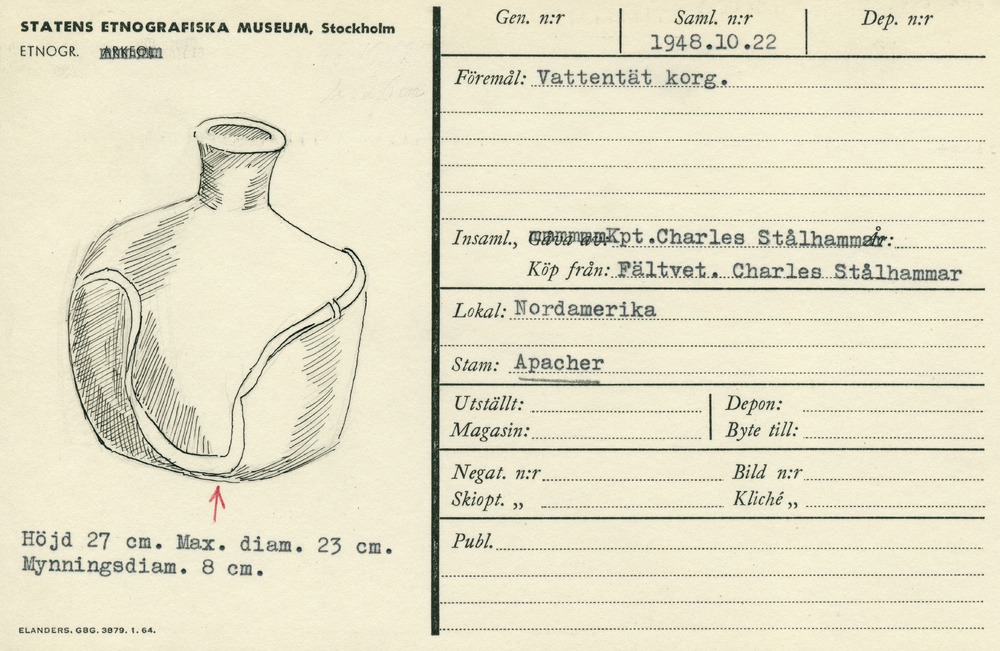 STATENS ETNOGRAFISKA MUSEUM, Stockholm
ETNOGR. ARKEOL.
Höjd 27 cm. Max. diam. 23 cm.
Mynningsdiam. 8 cm.
ELANDERS, GBG. 3879. 1. 64.
Gen. n:r
Saml. n:r
1948.10.22
Dep. n:r
Föremål: Vattentät korg.
Insaml., Gåva av: Kpt.Charles Stålhammar År:
Köp från: Fältvet. Charles Stålhammar
Lokal: Nordamerika
Stam: Apacher
Utställt:
Depon:
Magasin:
Byte till:
Negat. n:r
Bild n:r
Skiopt. „
Kliché „
Publ.